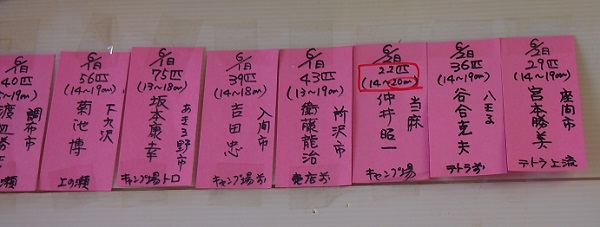 40匹
(14〜19cm)
調布市
6/1日
56匹
(14〜19cm)
下穴沢
菊池 博
上の瀬
6/1日
75匹
(13〜18cm)
あきる野市
坂本康幸
キャンプ場トロ
6/1日
39匹
(14〜18cm)
入間市
吉田 忠
キャンプ場前
6/1日
43匹
(13〜19cm)
所沢市
衛藤龍治
売店前
6/2日
22匹
(14〜20cm)
当麻
仲井昭一
キャンプ場
6/2日
36匹
(14〜19cm)
八王子
谷合克夫
テトラ前
6/2日
29匹
(14〜19cm)
座間市
宮本勝美
テトラ上流